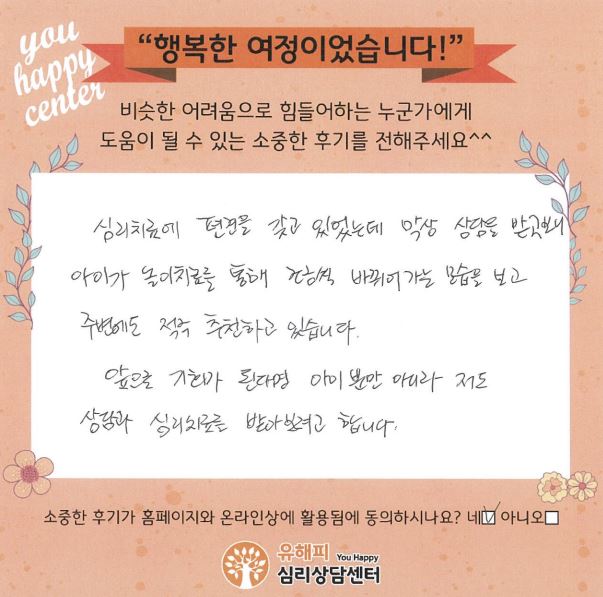 you
happy
center
“행복한 여정이었습니다!”
비슷한 어려움으로 힘들어하는 누군가에게
도움이 될 수 있는 소중한 후기를 전해주세요^^
심리치료에 편견을 갖고 있었는데 막상 상담을 받곳보니
아이가 놀이치료를 통해 조금씩 바뀌어가는 모습을 보고
주변에도 적극 추천하고 있습니다.
앞으로 기회가 된다면 아이 뿐만 아니라 저도
상담과 심리치료를 받아보려고 합니다.
소중한 후기가 홈페이지와 온라인상에 활용됨에 동의하시나요? 네☑ 아니오☐
유해피 You Happy
심리상담센터